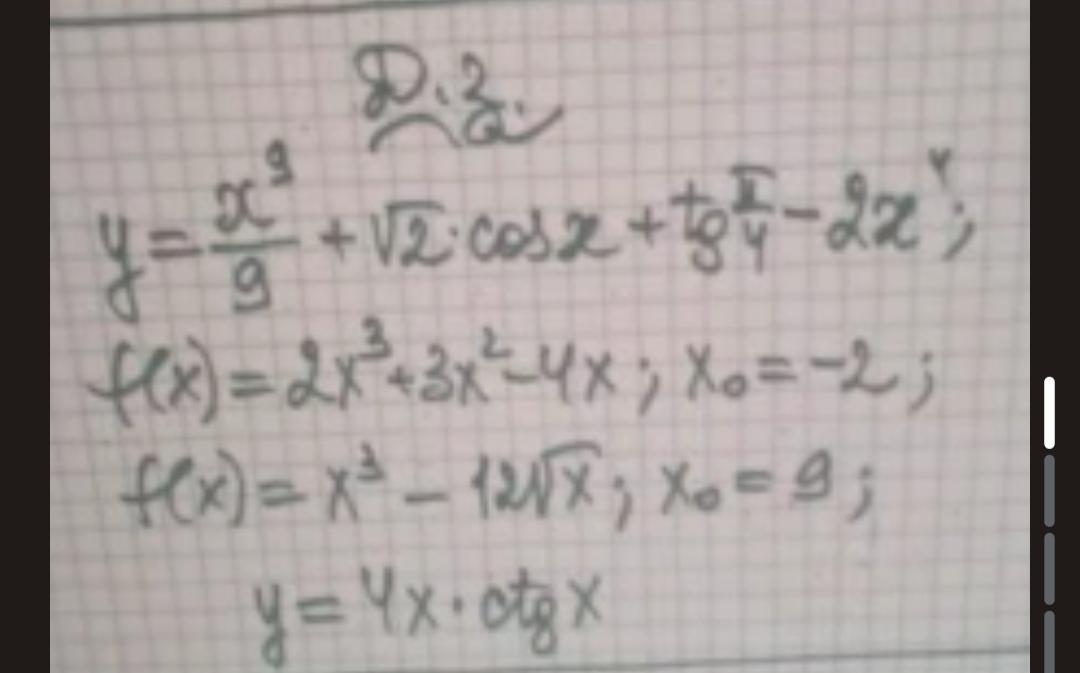 Д.З.
y = x⁹/9 + √2 · cos x + tg π/4 - 2x⁴;
f(x) = 2x³ + 3x² - 4x; x₀ = -2;
f(x) = x³ - 12√x; x₀ = 9;
y = 4x · ctg x